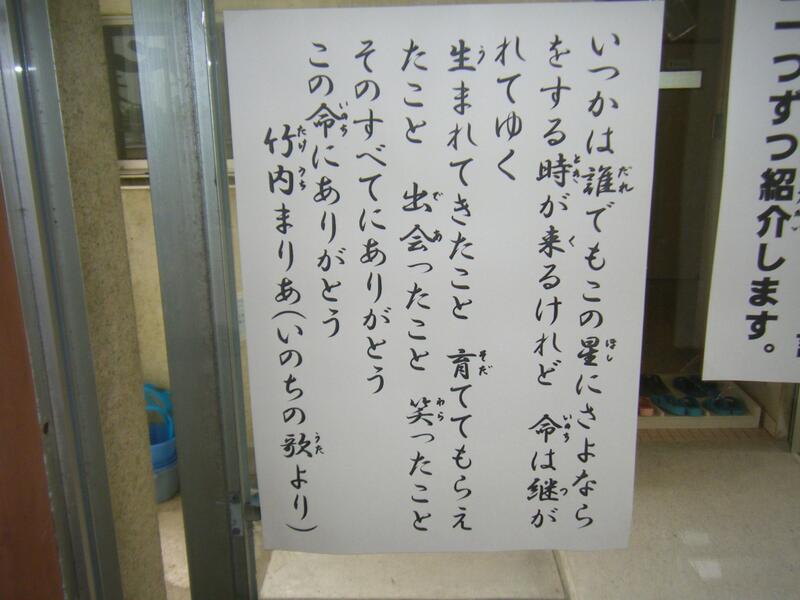 一つずつ紹介します。
いつかは誰でもこの星にさよなら
をする時が来るけれど 命は継が
れてゆく
生まれてきたこと 育ててもらえ
たこと 出会ったこと 笑ったこと
そのすべてにありがとう
この命にありがとう
竹内まりあ(いのちの歌より)